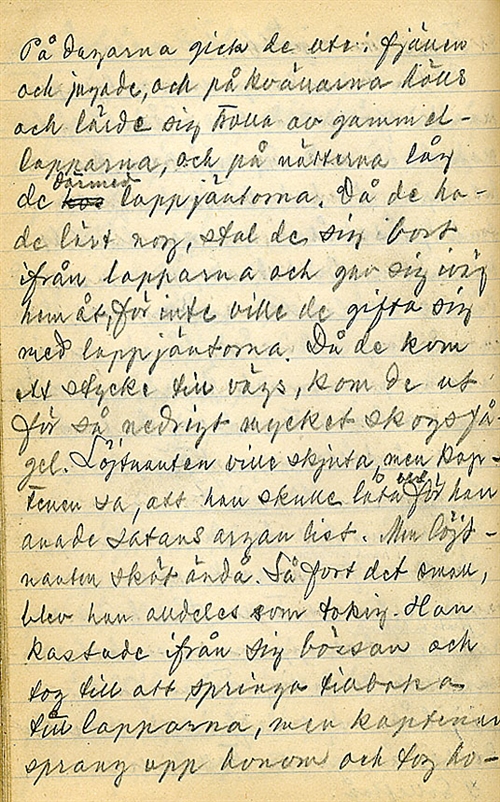 På dagarna gick de ute i fjällen
och jagade, och på kvällarna hölls
och lärde sig trolla av gammel-
lapparna, och på nätterna låg
de hos därmed lappjäntorna. Då de ha-
de lärt nog, stal de sig bort
ifrån lapparna och gav sig iväg
hemåt, för inte ville de gifta sig
med lappjäntorna. Då de kom
ett stycke till vägs, kom de ut
för så nedrigt mycket skogsfå-
gel. Löjtnanten ville skjuta, men kap-
tenen sa, att han skulle låta bli för han
anade satans argan list. Men löjt-
nanten sköt ändå. Så fort det small,
blev han alldeles som tokig. Han
kastade ifrån sig bössan och
tog till att springa tillbaka
till lapparna, men kaptenen
sprang upp honom och tog ho-